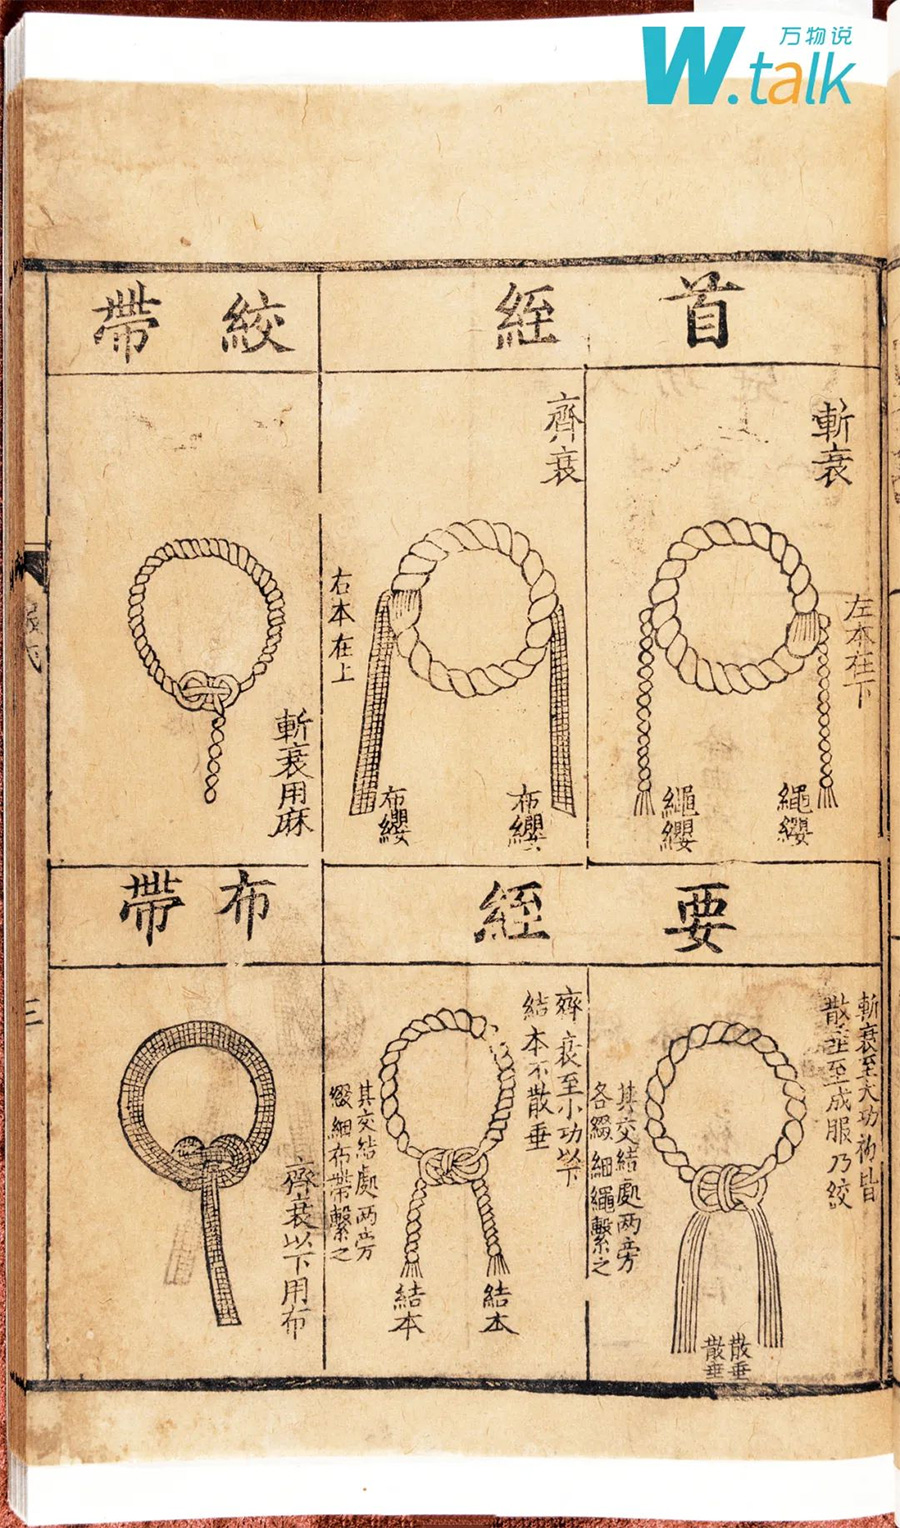 万物说
W.talk
首絰
斬衰
左本在下
繩纓
繩纓
齊衰
右本在上
布纓
布纓
絞帶
斬衰用麻
要絰
斬衰至大功初皆
散垂至成服乃絞
其交結處两旁
各綴細繩繫之
散垂
散垂
齊衰至小功以下
結本不散垂
其交結處两旁
綴細布帶繫之
結本
結本
布帶
齊衰以下用布
三